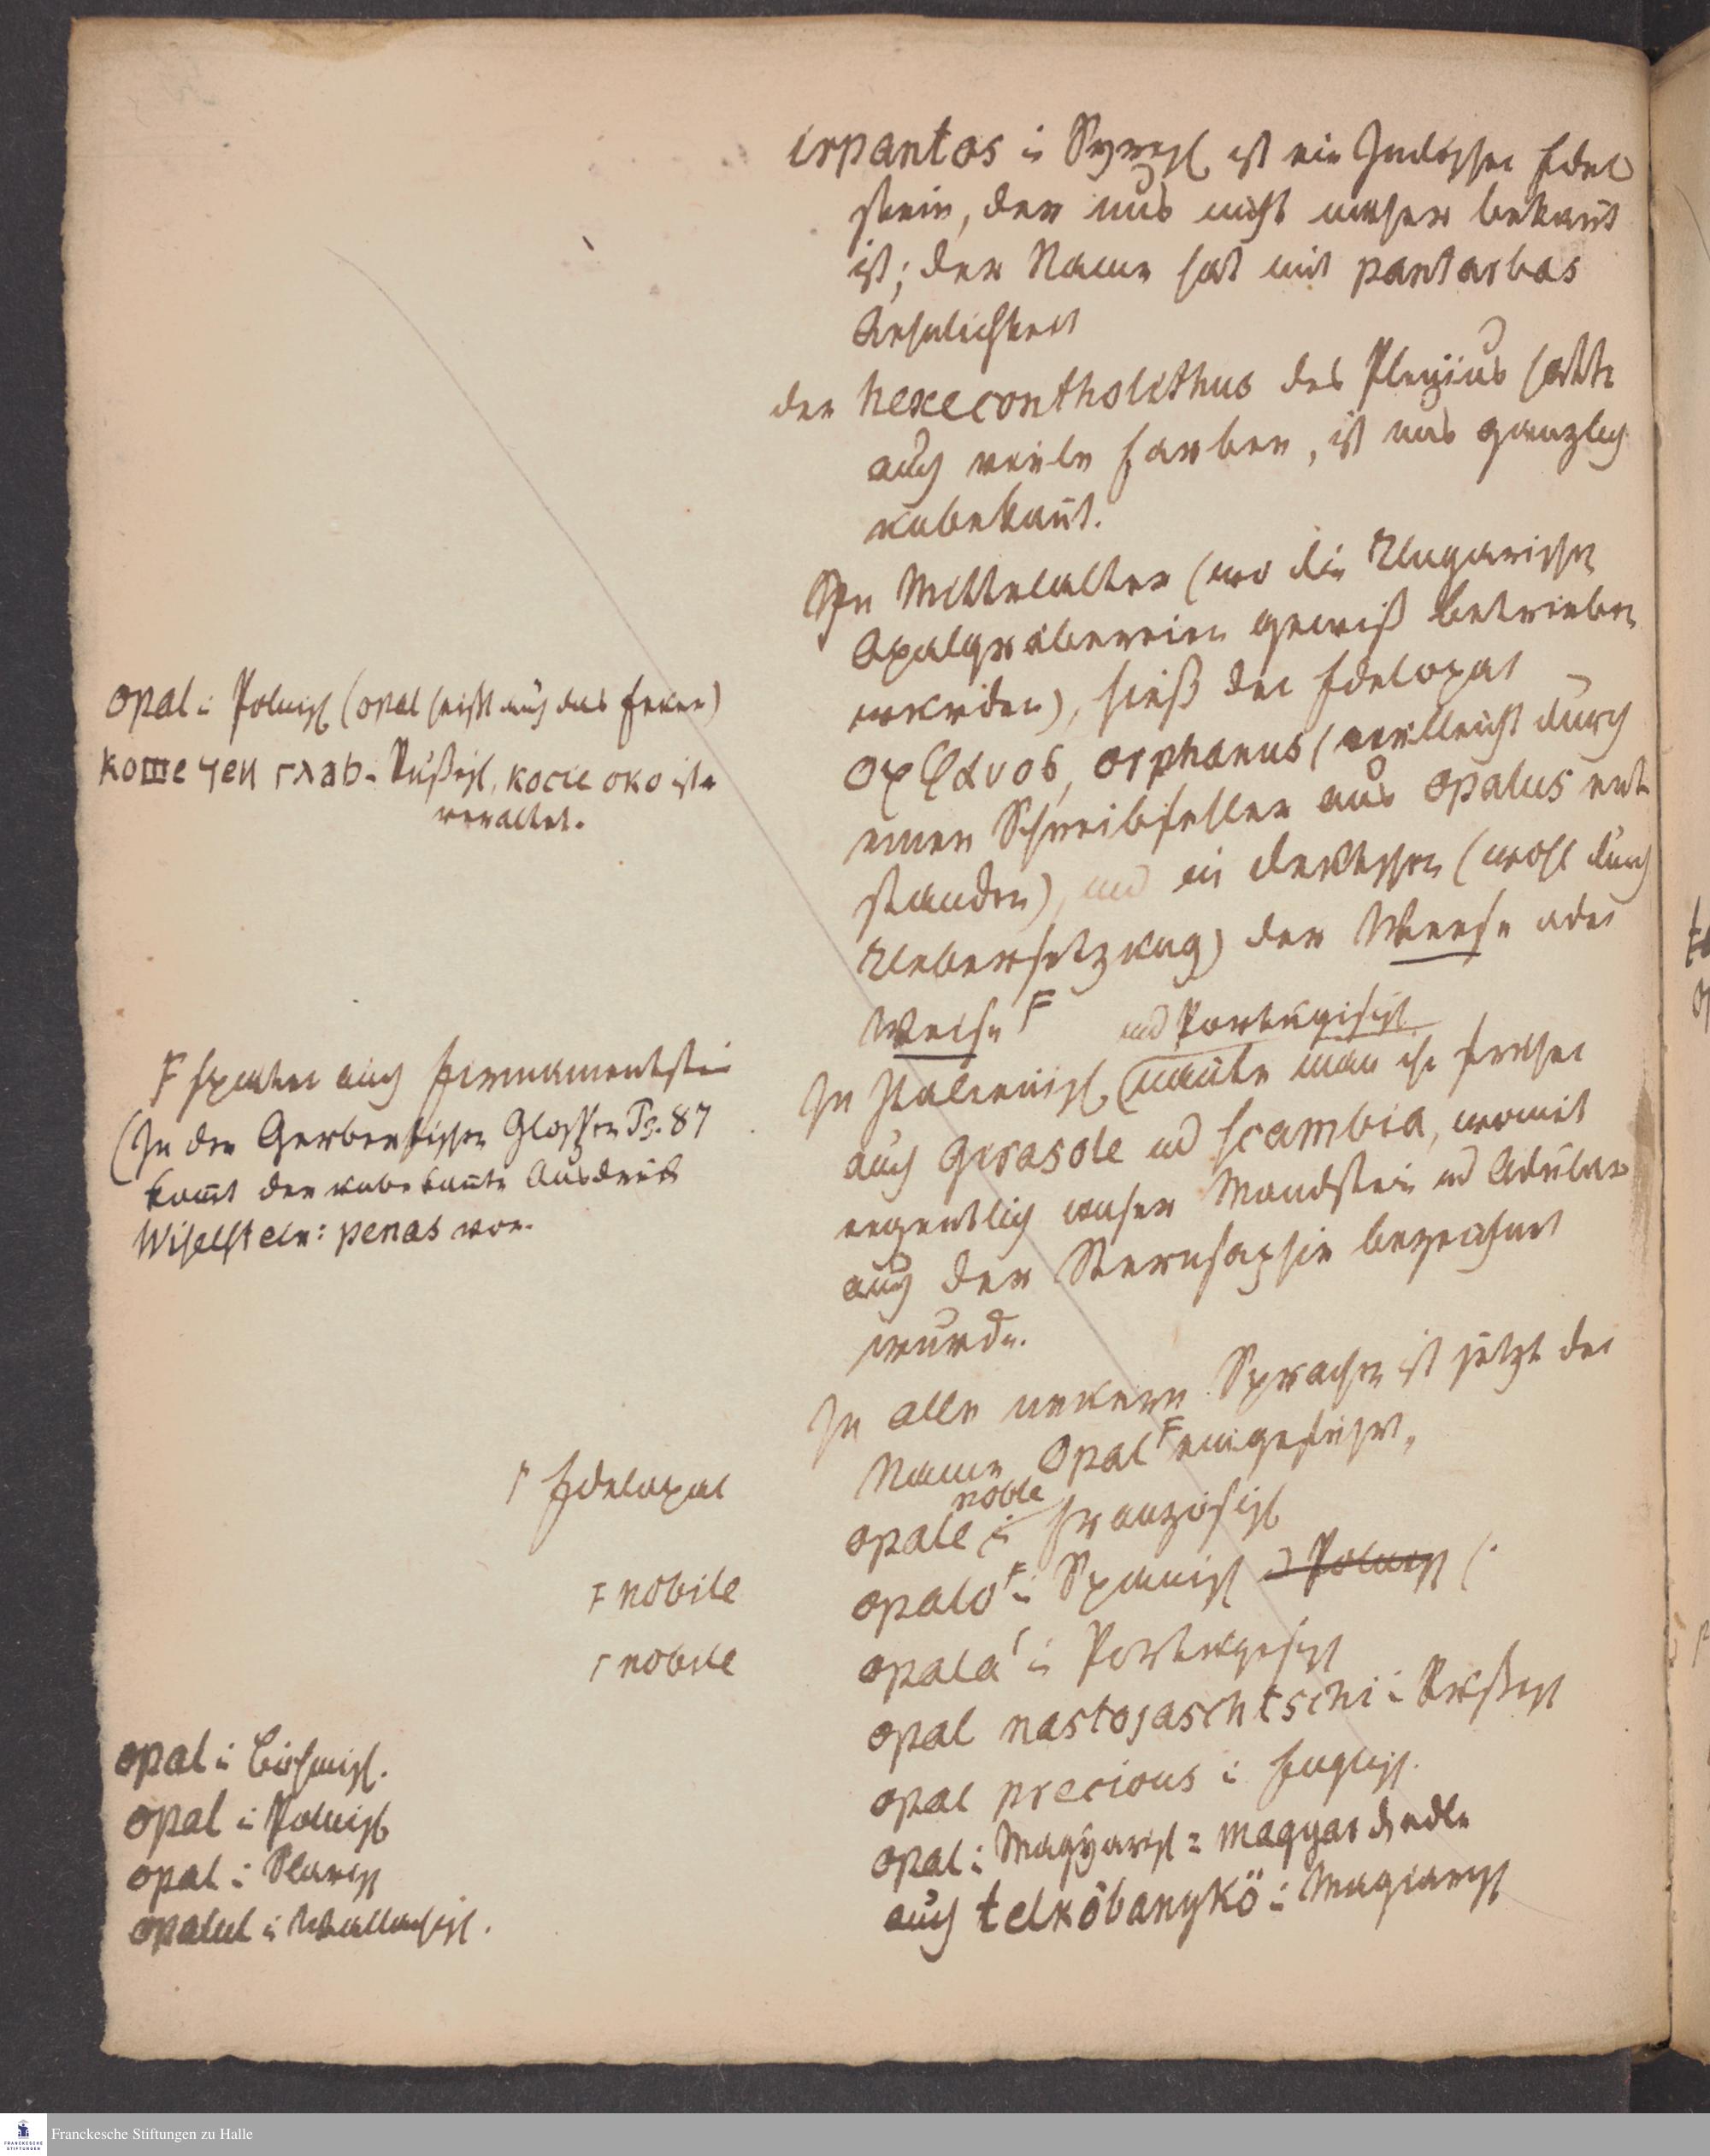 irpantos i Syrisch ist ein Indischer Edel
stein, der uns nicht naeher bekant
ist; der Name hat mit pantarbas
Aehnlichkeit
der hexecontholithus des Plinius hatte
auch viele Farben, ist uns gänzlich
unbekant.
Im Mittelalter (wo die Ungarischen
Opalgräbereien gewiß betrieben
wurden), hieß der Edelopal
ορφανος, orphanus (vielleicht durch
einen Schreibfehler aus opalus ent
standen), und in Deutschen (wohl durch
Uebersetzung) der Weese oder
Weise F
und Portugisisch
In Italienisch nante man ihn früher
auch Girasole und scambia, womit
eigentlich unser Mondstein und Adular
auch der Sternsaphir bezeichnet
wurde.
In alle neuern Sprachen ist jetzt der
Name Opal F eingeführt,
noble
opale i französisch
opalo F i Spanisch u Polnisch
opala i Portugisisch
opal nastojaschtschi i Rußisch
opal precious i Englisch.
opal i Magyarisch = magyar d edle
auch telkobanykö i Magiarisch
opal i Polnisch (opal heißt auch das Feuer)
кошечеи глаз i Rußisch, косие око ist
veraltet.
F spaeter auch Firmamentstein
(In den Gerbertischen Glossen Ps. 87
komt der unbekante Ausdruck
Wiselstein: penas vor.
Γ Edelopal
F nobile
Γ nobile
opal i Böhmisch.
opal i Polnisch
opal i Slavisch
opalul i Wallachisch.
Franckesche Stiftungen zu Halle
FRANCKESCHE
STIFTUNGEN